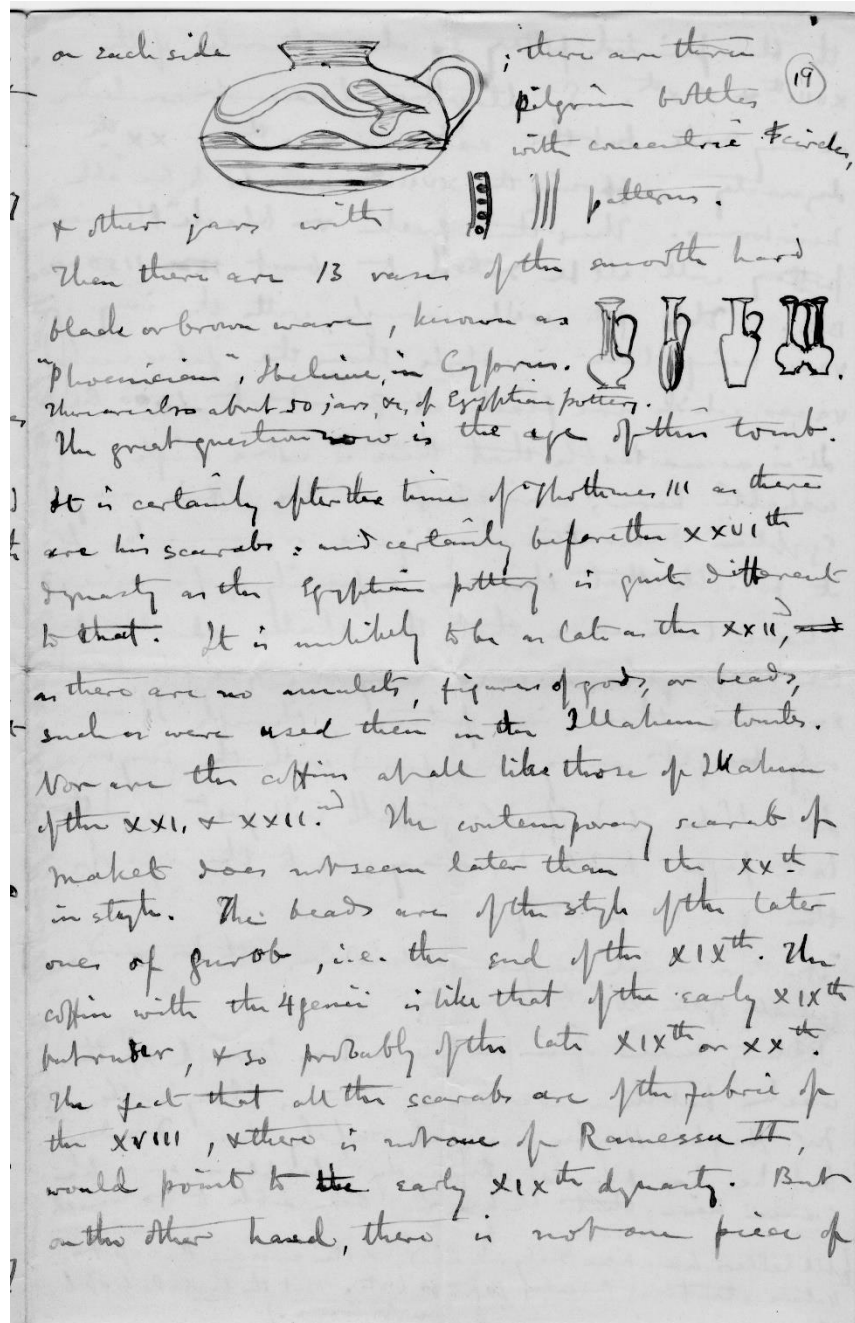 19
on each side ; there are three
pilgrim bottles
with concentric circles,
& other jars with patterns.
Then there are 13 vases of the smooth hard
black or brown ware, known as
"Phoenician", in Cyprus.
There are also about 50 jars, &c, of Egyptian pottery.
The great question now is the age of this tomb.
It is certainly after the time of Thothmes III as there
are his scarabs : and certainly before the XXVIth
dynasty as the Egyptian pottery is quite different
to that. It is unlikely to be as late as the XXIInd, and
as there are no amulets, figures of gods, or beads,
such as were used then in the Illahun tombs.
Nor are the coffins at all like those of Illahun
of the XXI, & XXII.nd The contemporary scarab of
Maket does not seem later than the XXth
in style. The beads are of the style of the later
ones of Gurob, i.e. the end of the XIXth. The
coffin with the 4 genii is like that of the early XIXth
but ruder, & so probably of the late XIXth or XXth.
The fact that all the scarabs are of the fabric of
the XVIII, & there is not one of Ramessu II,
would point to the early XIXth dynasty. But
on the other hand, there is not one piece of